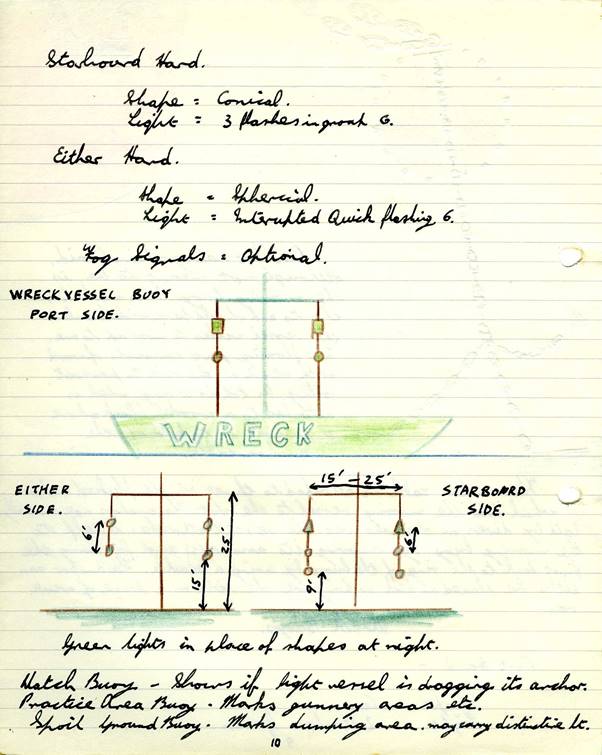 Starboard Hand.
Shape = Conical.
Light = 3 flashes in group G.
Either Hand.
Shape = Sphercial.
Light = Interupted Quick flashing G.
Fog Signals = Optional.
WRECK VESSEL BUOY
PORT SIDE.
WRECK
EITHER
SIDE.
15' - 25'
STARBOARD
SIDE.
6'
15'
25'
9'
6'
Green lights in place of shapes at night.
Watch Buoy - Shows if light vessel is dragging its anchor.
Practice Area Buoy - Marks gunnery areas etc.
Spoil Ground Buoy - Marks dumping area. may carry distinctive lt.
10